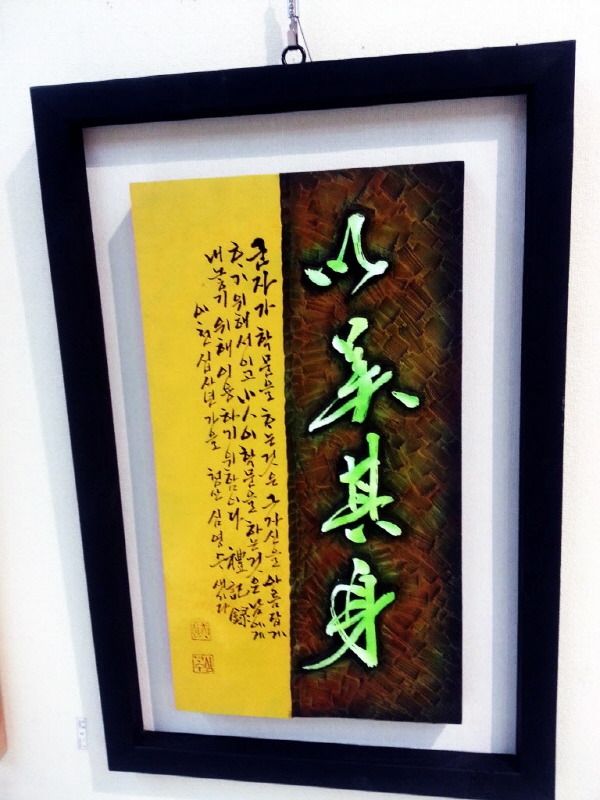 以美其身
군자가 학문을 하는것은 그 자신을 아름답게
하기 위해서이고 小人이 학문을 하는것은 남에게
내놓기 위해 이용하기 위함이다 禮記 錄
이천십사년 가을 심영수